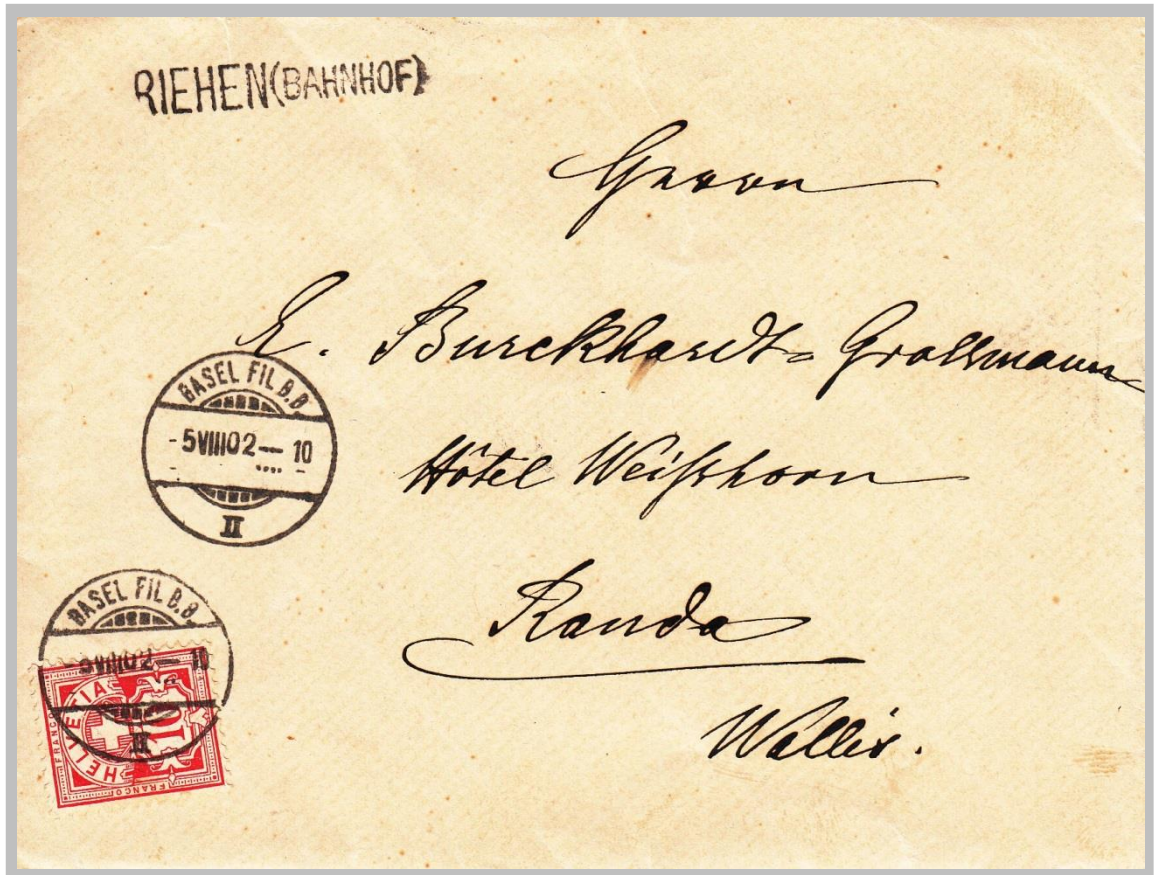 RIEHEN (BAHNHOF)
Herrn
E. Burckhardt-Grossmann
Hôtel Weißhorn
Randa
Wallis.
BASEL FIL.B.B.
-5VIII02—10
II
BASEL FIL.B.B.
-5VIII02—10
II
FRANCO
HELVETIA
10
FRANCO